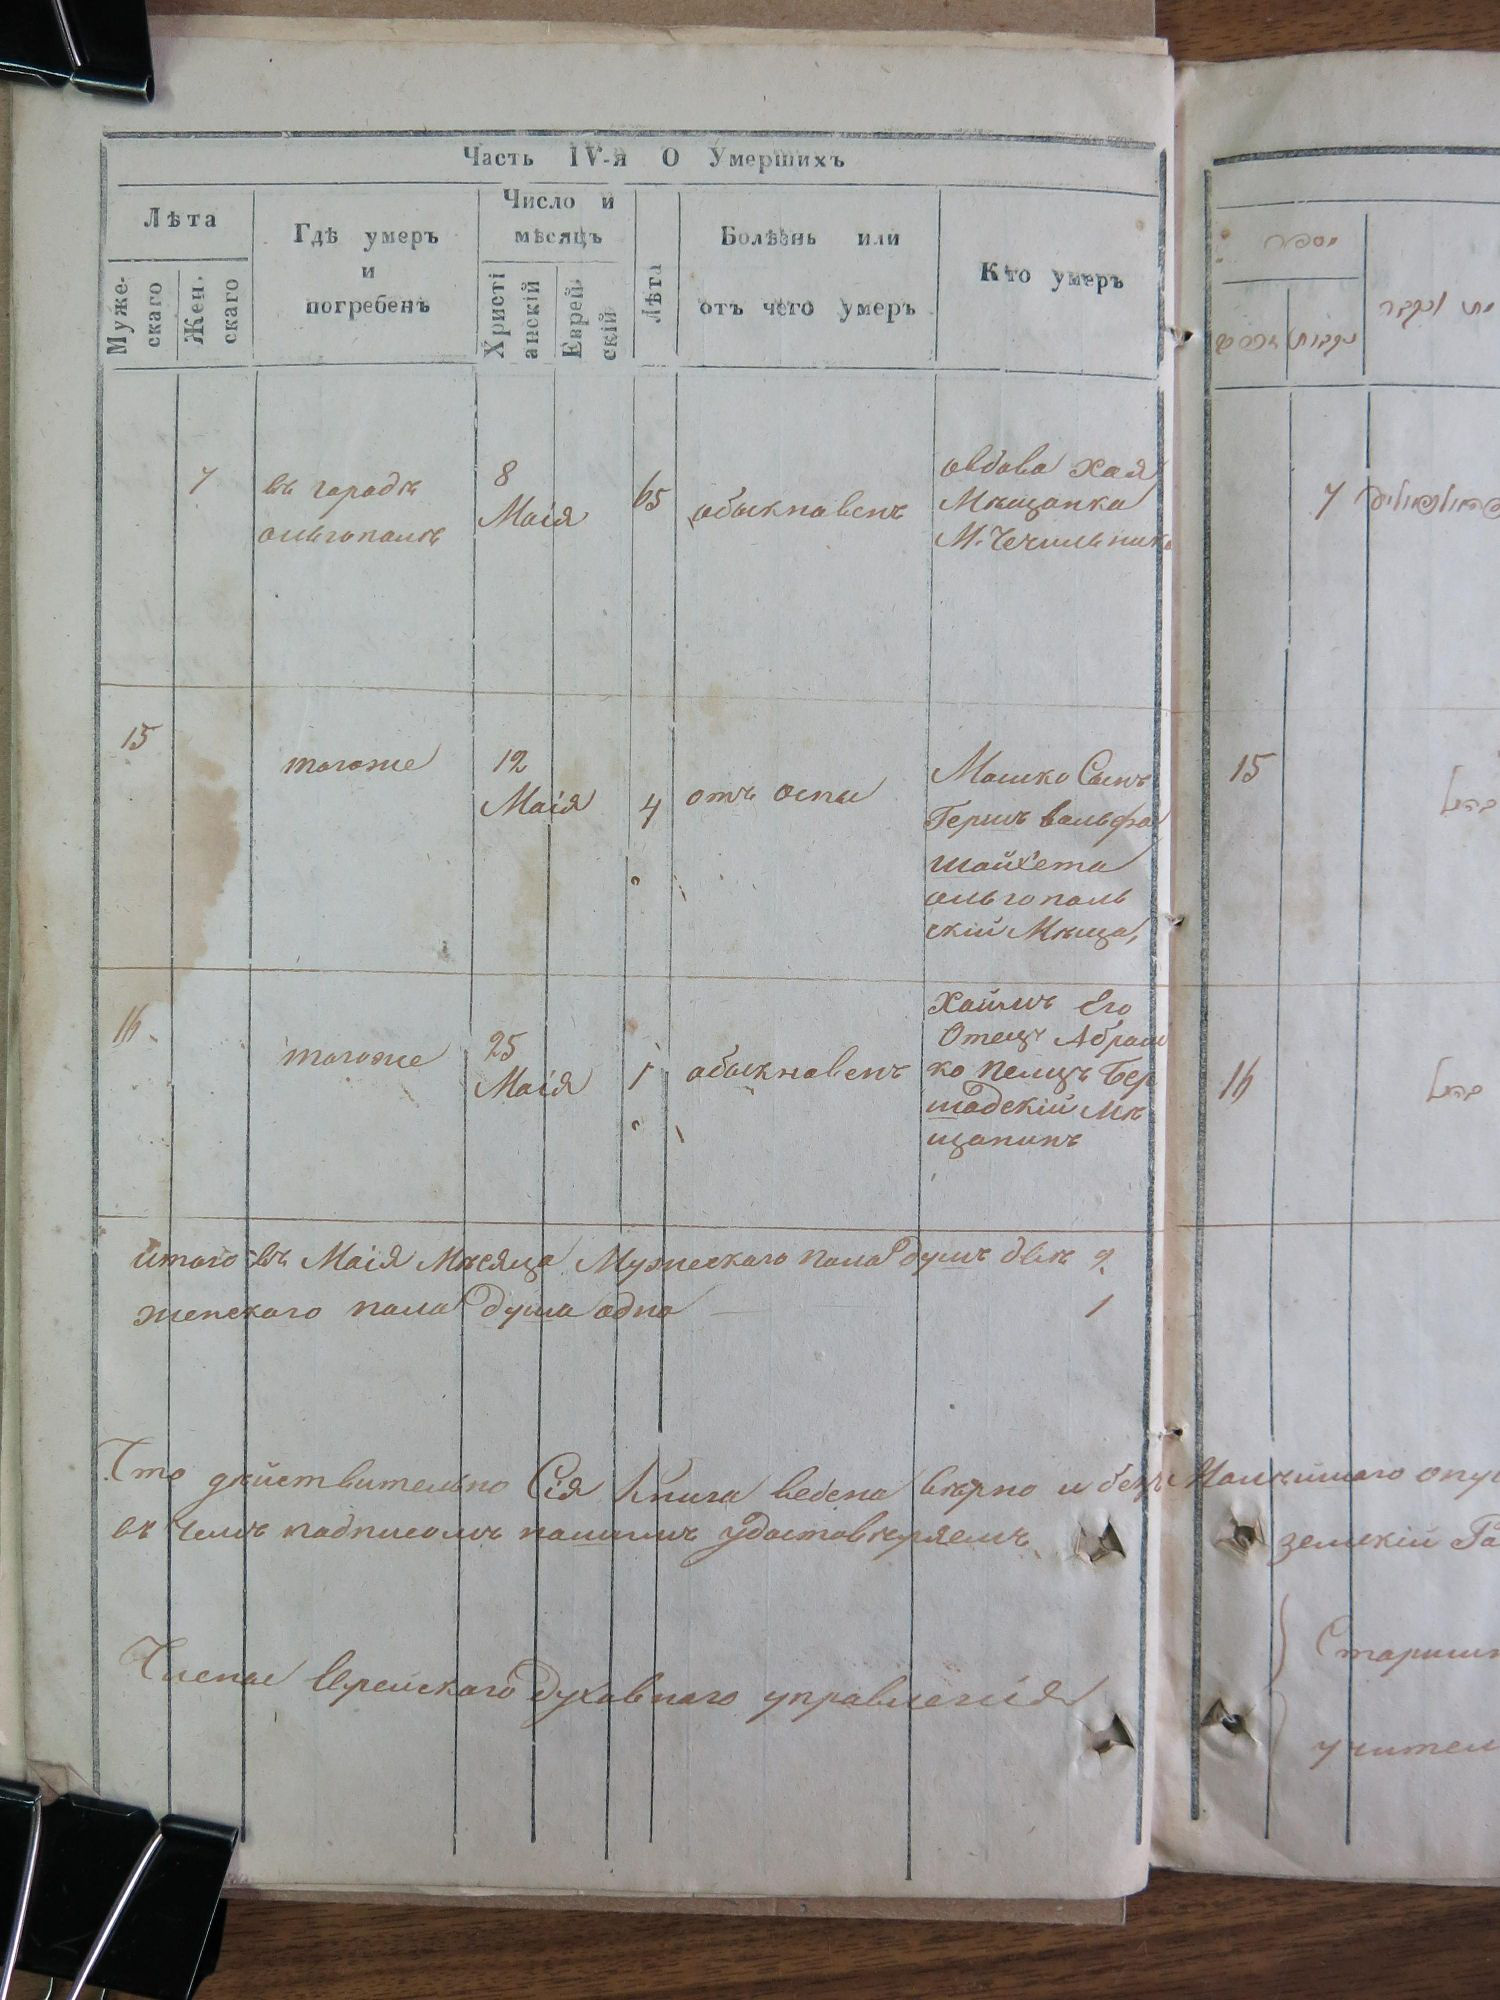 Часть IV-я О Умершихъ
Лѣта
Муже-
скаго
Жен.
скаго
Гдѣ умеръ
и
погребенъ
Число и
мѣсяцъ
Христі
анскій
Еврей.
скій
Лѣта
Болѣзнь или
отъ чего умеръ
Кто умеръ
7
въ городѣ
ольгополѣ
8
Маія
65
обыкновенъ
овдова Хая
Мѣщанка
М. Чечильника
15
тогоже
12
Маія
4
отъ оспы
Мошко Сынъ
Гершъ вольфа
шойхета
ольгополь
скій Мѣща,
16
тогоже
25
Маія
1
обыкновенъ
Хаимъ Его
Отецъ Абраш
ко Пелицъ Бер
шадскій Мѣ
щанинъ
итого въ Маія Мѣсяца Мужескаго пола душъ двѣ 2.
женскаго пола душа одна — 1
Что дѣйствительно Сія Книга ведена вѣрно и безъ Малѣйшаго опу
въ чемъ подписомъ нашимъ удостовѣряемъ
Члены Еврейскаго Духовнаго управленія
7
15
16
земскій Ра
Старши
учител